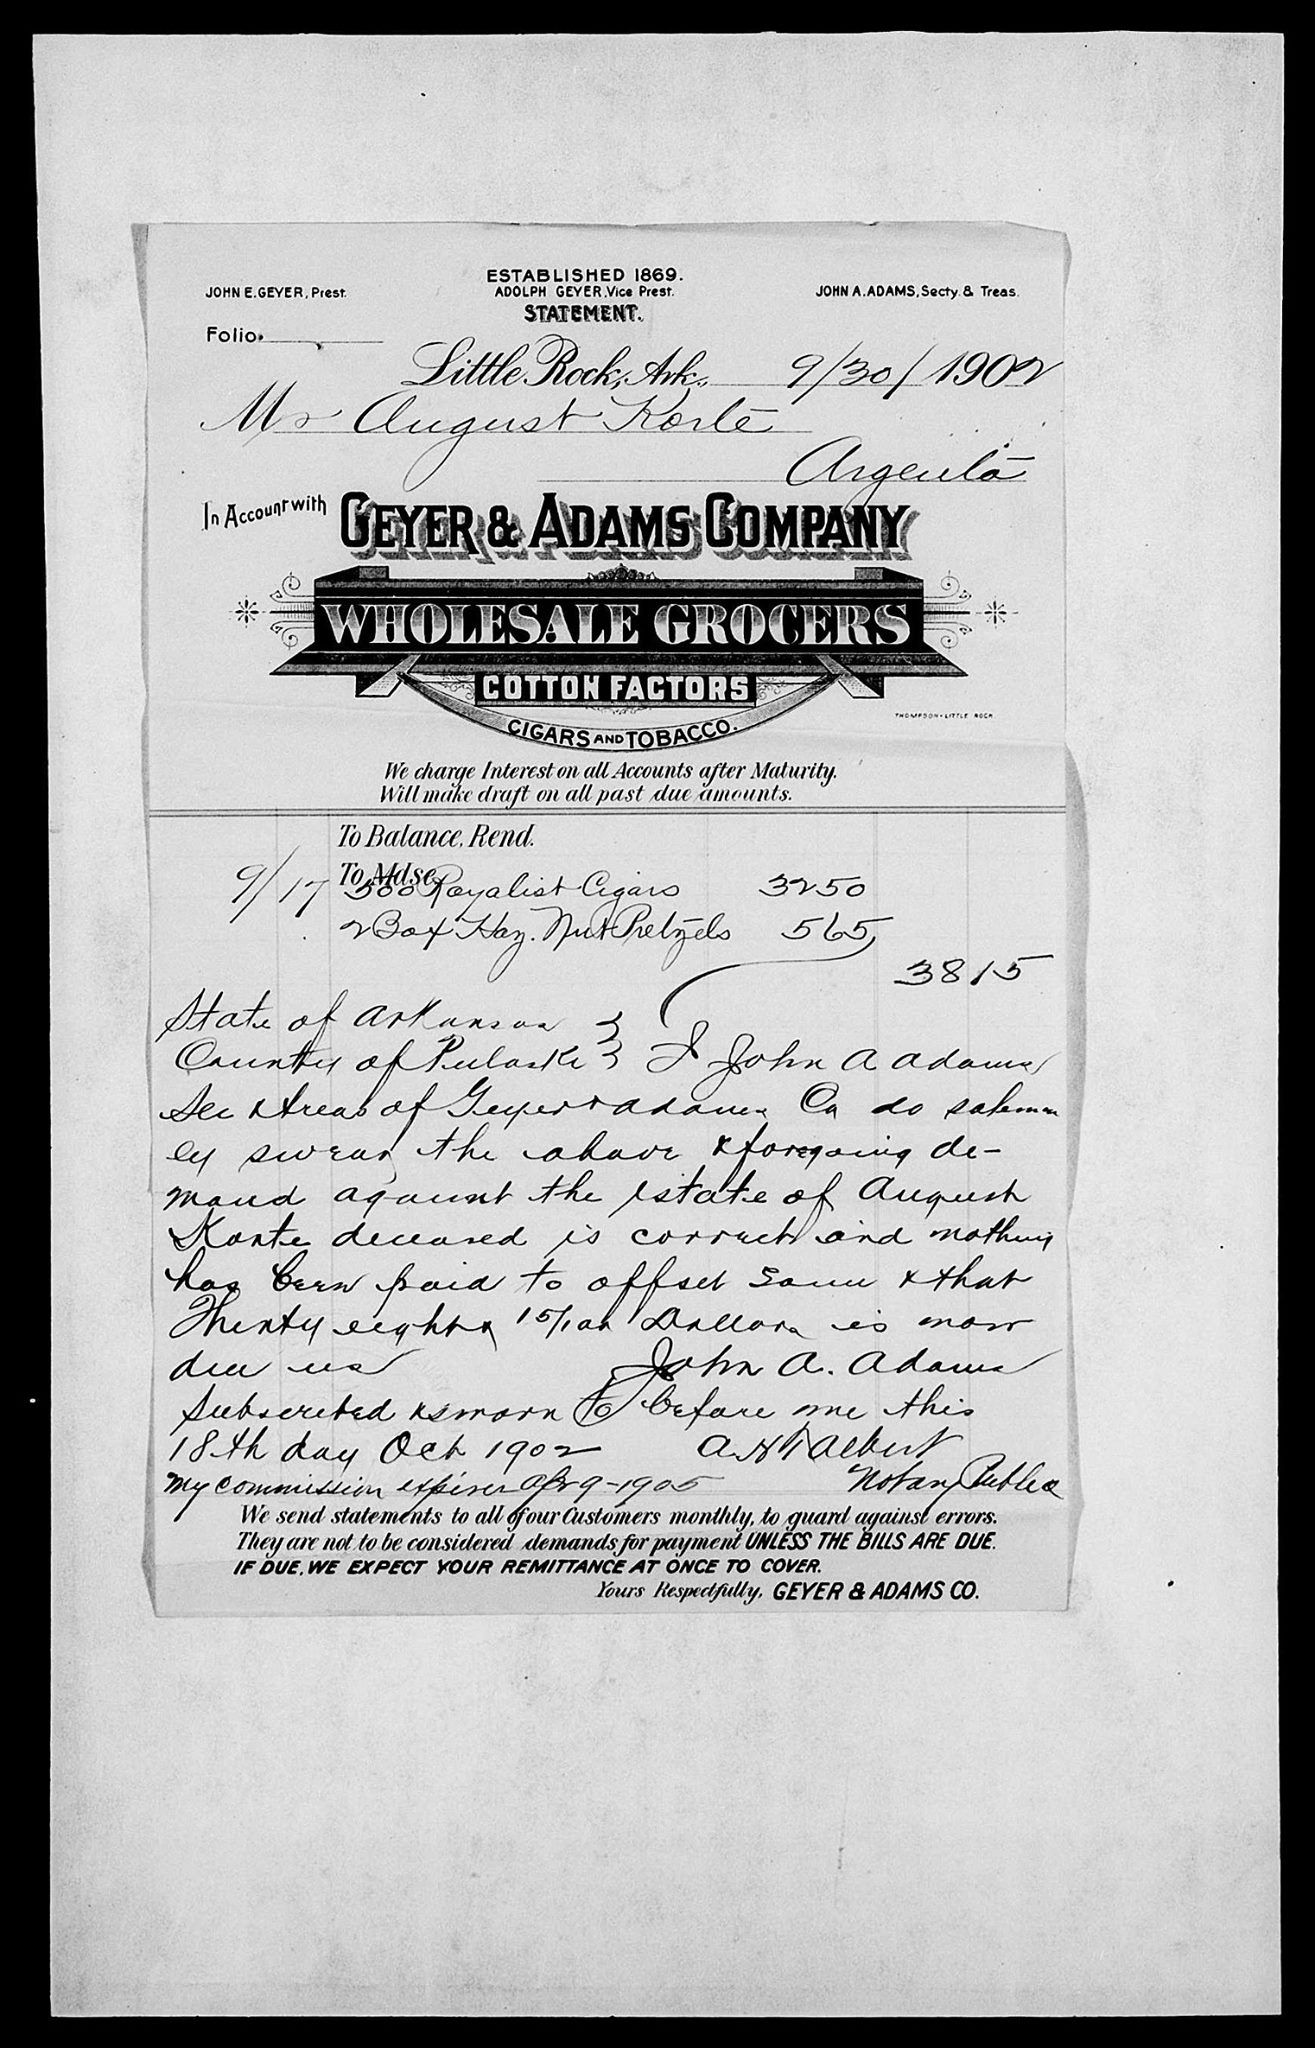 ESTABLISHED 1869.
JOHN E. GEYER, Prest. ADOLPH GEYER, Vice Prest. JOHN A. ADAMS, Secty. & Treas.
STATEMENT.
Folio
Little Rock, Ark. 9/30/1902
Mr August Korte
Argenta
In Account with GEYER & ADAMS COMPANY
WHOLESALE GROCERS
COTTON FACTORS
CIGARS AND TOBACCO.
THOMPSON-LITTLE ROCK
We charge Interest on all Accounts after Maturity.
Will make draft on all past due amounts.
To Balance, Rend.
To Mdse
9/17 500 Royalist Cigars 3250
2 Box Haz. Nut Pretzels 565
3815
State of Arkansas }
County of Pulaski } I John A Adams
Sec & Treas of Geyer & Adams Co do solemn
ly swear the above & foregoing de-
mand against the estate of August
Korte deceased is correct and nothing
has been paid to offset same & that
Thirty eight & 15/100 Dollars is now
due us John A. Adams
Subscribed & sworn to before me this
18th day Oct 1902 A H Talbert
My commission expires Apr 9-1905 Notary Public
We send statements to all of our Customers monthly, to guard against errors.
They are not to be considered demands for payment UNLESS THE BILLS ARE DUE.
IF DUE, WE EXPECT YOUR REMITTANCE AT ONCE TO COVER.
Yours Respectfully, GEYER & ADAMS CO.